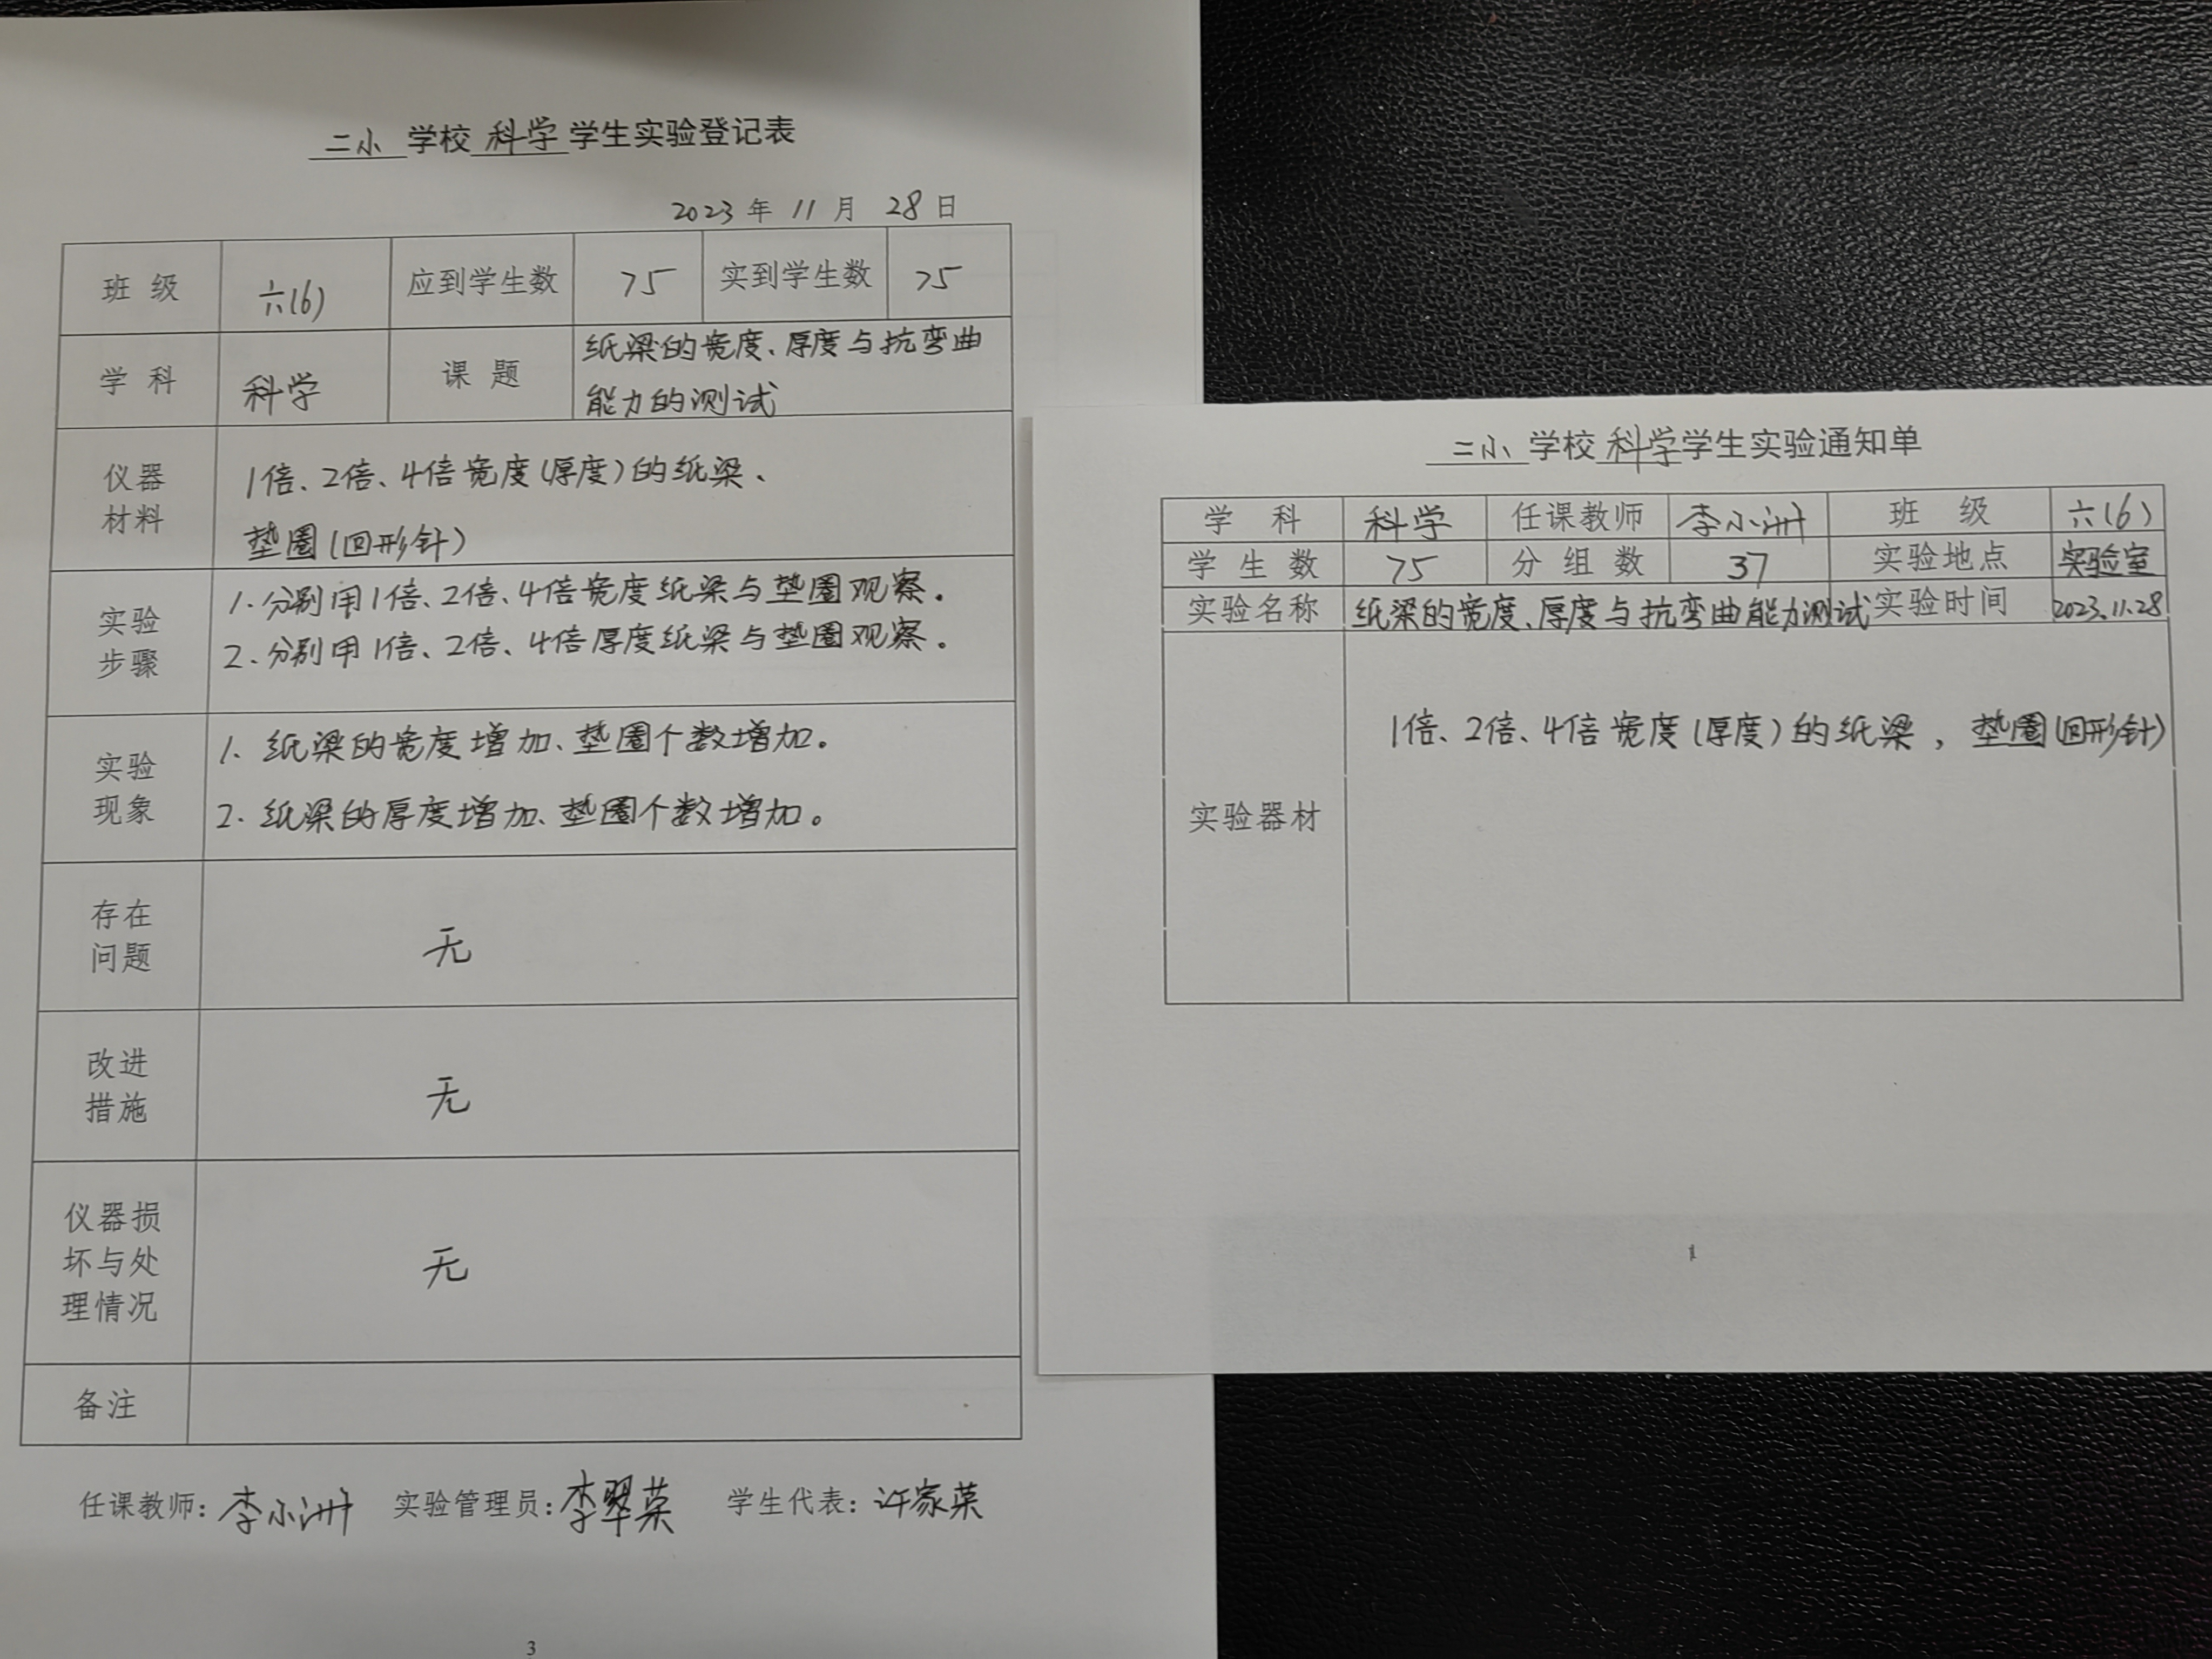 二小 学校 科学 学生实验登记表
2023 年 11 月 28 日
班 级 六(6) 应到学生数 75 实到学生数 75
学 科 科学 课 题 纸梁的宽度、厚度与抗弯曲
能力的测试
仪器
材料
1倍、2倍、4倍宽度(厚度)的纸梁、
垫圈(回形针)
实验
步骤
1. 分别用1倍、2倍、4倍宽度纸梁与垫圈观察。
2. 分别用1倍、2倍、4倍厚度纸梁与垫圈观察。
实验
现象
1. 纸梁的宽度增加、垫圈个数增加。
2. 纸梁的厚度增加、垫圈个数增加。
存在
问题
无
改进
措施
无
仪器损
坏与处
理情况
无
备注
任课教师: 李小洲 实验管理员: 李翠荣 学生代表: 许家荣
3
二小 学校 科学 学生实验通知单
学 科 科学 任课教师 李小洲 班 级 六(6)
学 生 数 75 分 组 数 37 实验地点 实验室
实验名称 纸梁的宽度、厚度与抗弯曲能力测试 实验时间 2023.11.28
实验器材
1倍、2倍、4倍宽度(厚度)的纸梁，垫圈(回形针)
1